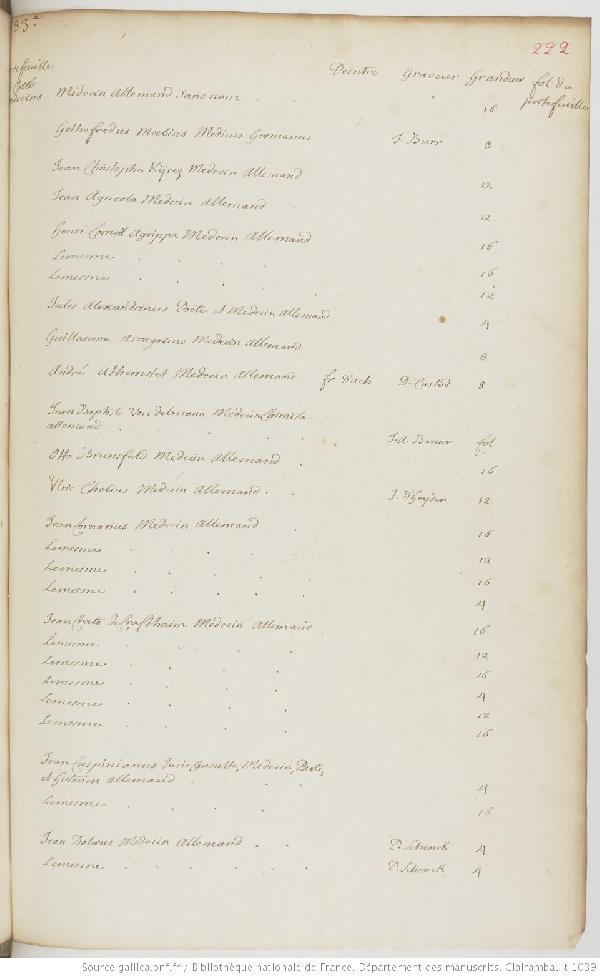 83.e
292
Peintre Graveur Grandeur fol. du portefeuille
Medecin Allemand sans nom 16
Gothofredus Moebius Medicus Germanus J. Burr 8
Jean Christophe Medecin Allemand 12
Jean Agricola Medecin Allemand 12
Henri Corneil Agrippa Medecin Allemand 16
Lemesme 16
Lemesme 12
Jules Alexandrinus Poete et Medecin Allemand 4
Guillaume Arragosius Medecin Allemand 8
André Medecin Allemand fr. D'ach D. Custod 8
Jean Baptiste Medecin Chimiste
allemand J. A. fol.
Otto Brunsfeld Medecin Allemand 16
Ulric Chelius Medecin Allemand J. d'heyder 12
Jean Cornarius Medecin Allemand 16
Lemesme 12
Lemesme 16
Lemesme 4
Jean Crato De Crafthaim Medecin Allemand 16
Lemesme 12
Lemesme 16
Lemesme 4
Lemesme 12
Lemesme 16
Jean Cuspinianus Juris Consulte, Medecin, Poete,
et historien Allemand 4
Lemesme 16
Jean Dolæus Medecin Allemand P. Schenck 4
Lemesme P. Schenck 4
Source gallica.bnf.fr / Bibliothèque nationale de France. Département des manuscrits. Clairambault 1039